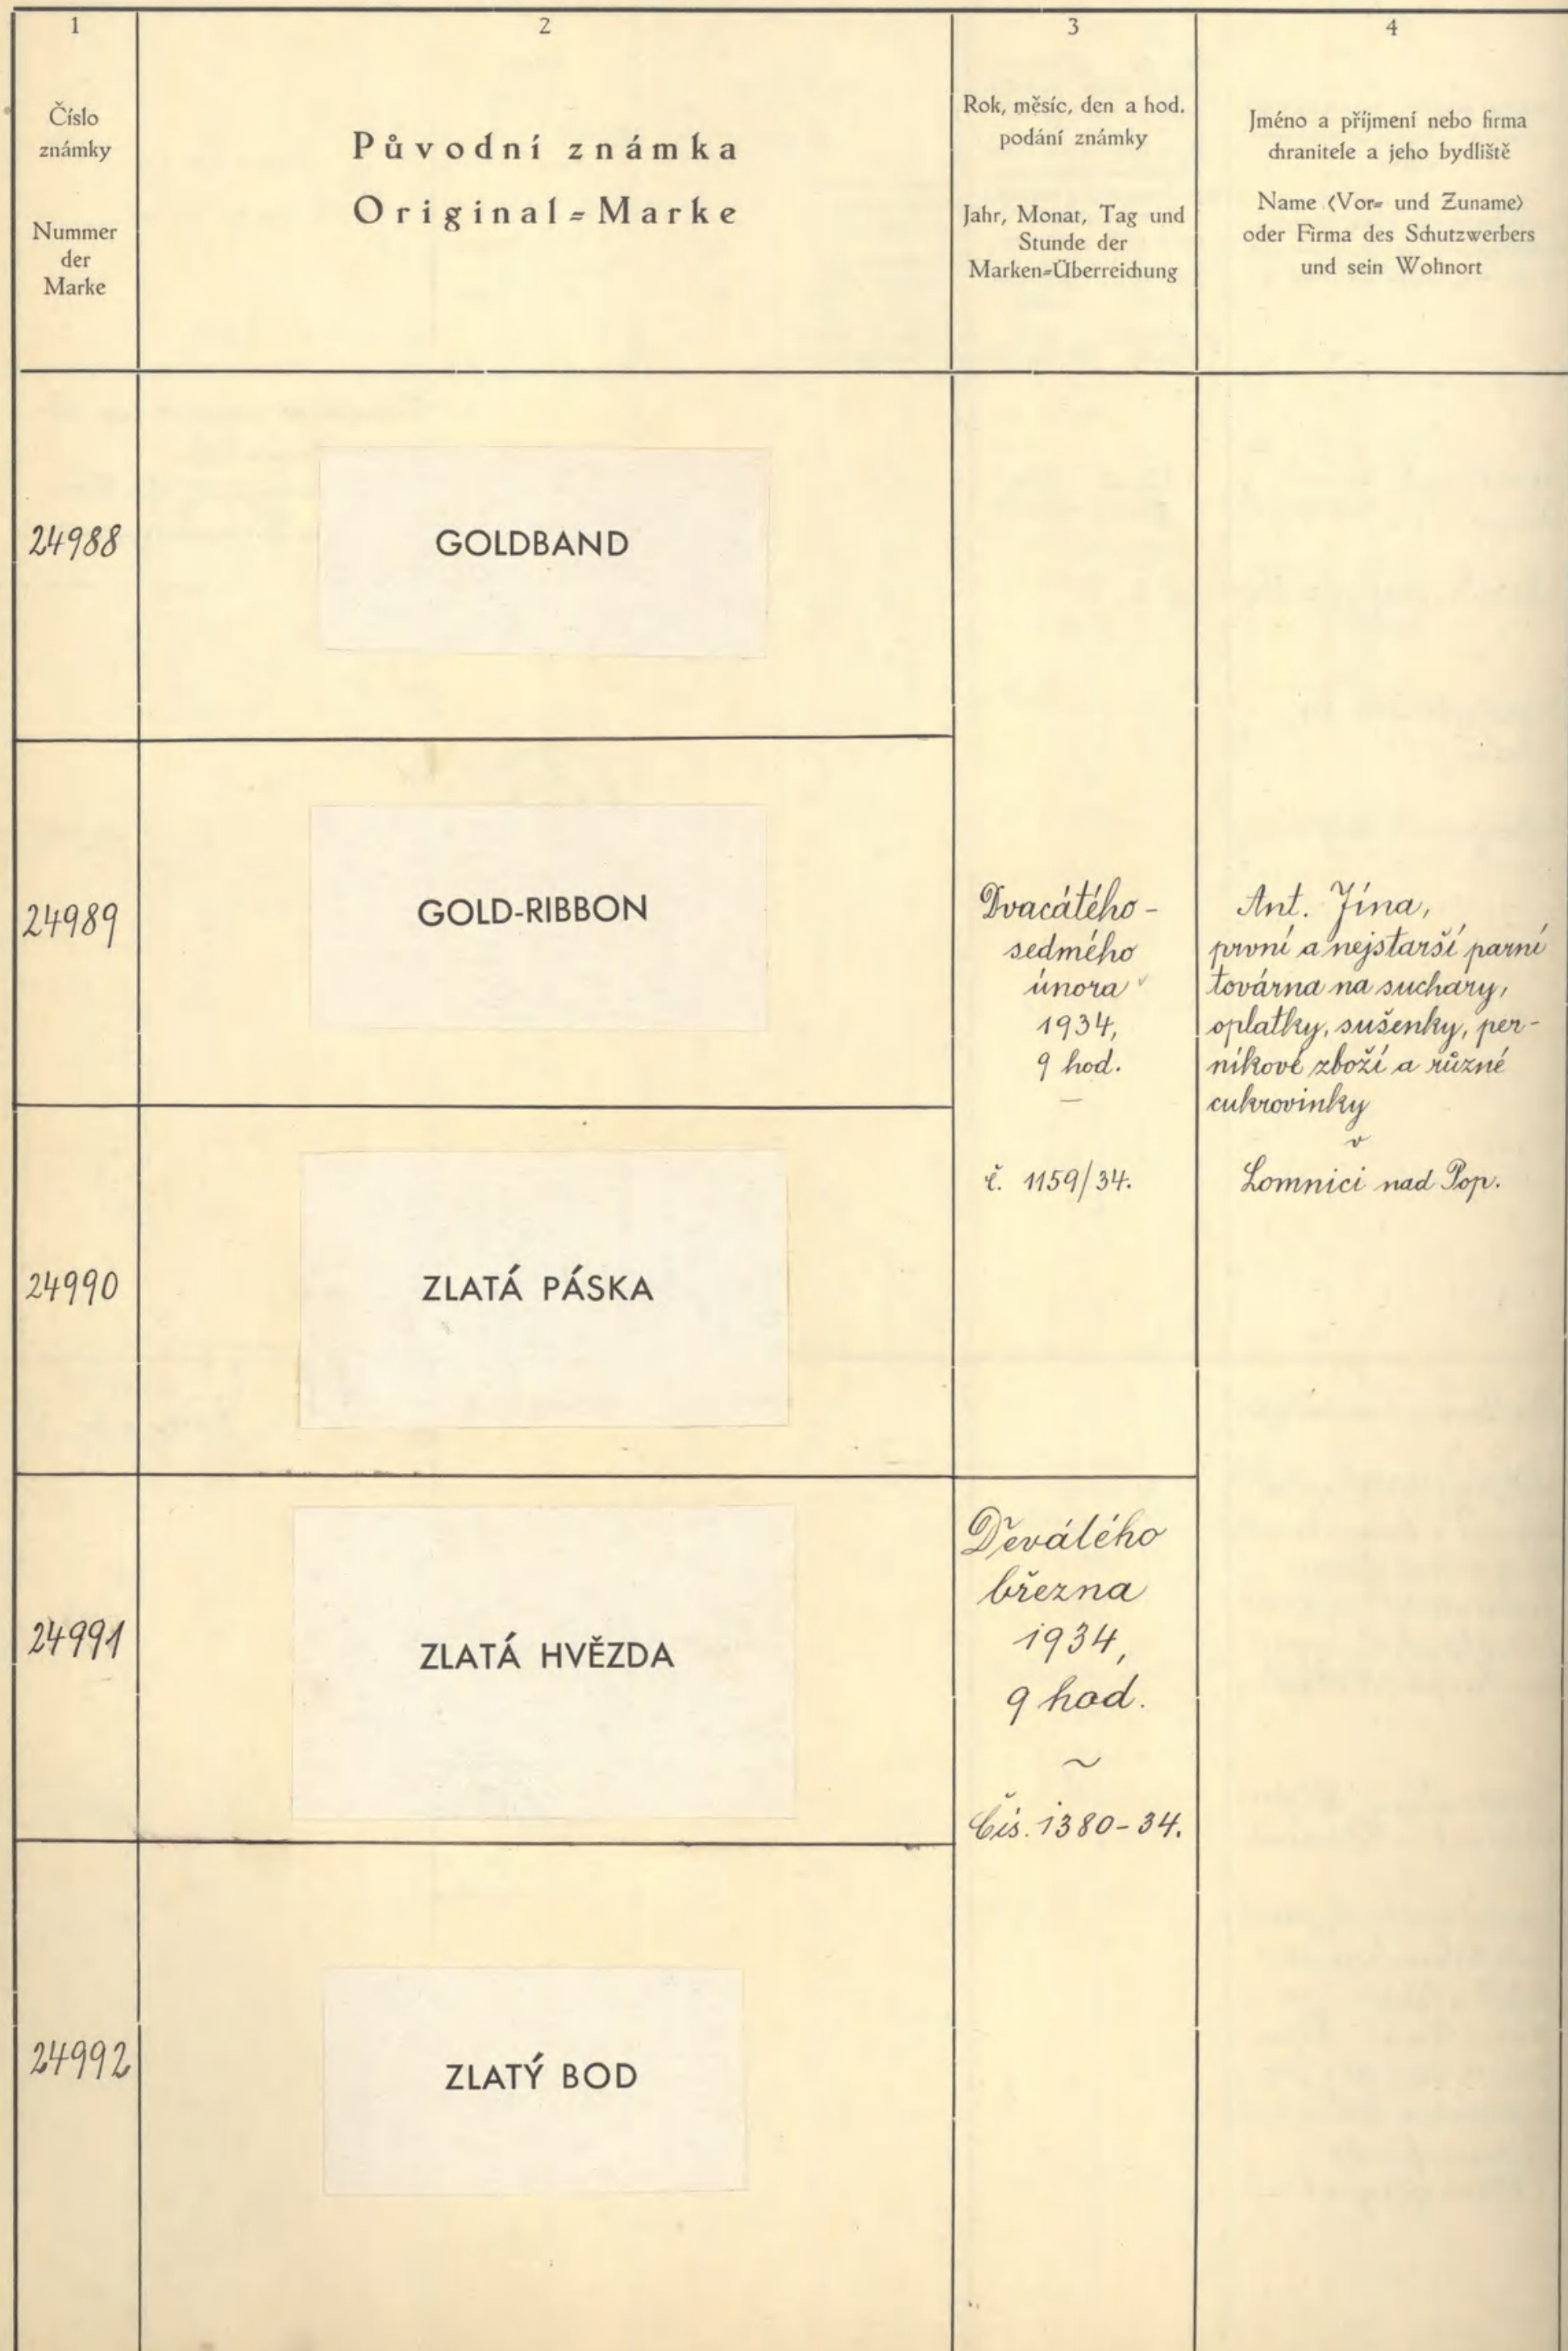 1
Číslo
známky
Nummer
der
Marke
2
Původní známka
Original=Marke
3
Rok, měsíc, den a hod.
podání známky
Jahr, Monat, Tag und
Stunde der
Marken=Überreichung
4
Jméno a příjmení nebo firma
chranitele a jeho bydliště
Name (Vor= und Zuname)
oder Firma des Schutzwerbers
und sein Wohnort
24988
GOLDBAND
24989
GOLD-RIBBON
24990
ZLATÁ PÁSKA
Dvacátého-
sedmého
února
1934,
9 hod.
—
č. 1159/34.
Ant. Jína,
první a nejstarší parní
továrna na suchary,
oplatky, sušenky, per-
níkové zboží a různé
cukrovinky
v
Lomnici nad Pop.
24991
ZLATÁ HVĚZDA
24992
ZLATÝ BOD
Devátého
března
1934,
9 hod.
~
Čís. 1380-34.